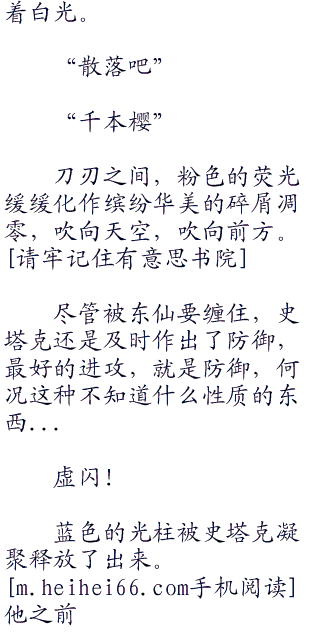 着白光。
“散落吧”
“千本樱”
刀刃之间，粉色的荧光
缓缓化作缤纷华美的碎屑凋
零，吹向天空，吹向前方。
[请牢记住有意思书院]
尽管被东仙要缠住，史
塔克还是及时作出了防御，
最好的进攻，就是防御，何
况这种不知道什么性质的东
西...
虚闪！
蓝色的光柱被史塔克凝
聚释放了出来。
[m.heihei66.com手机阅读]
他之前